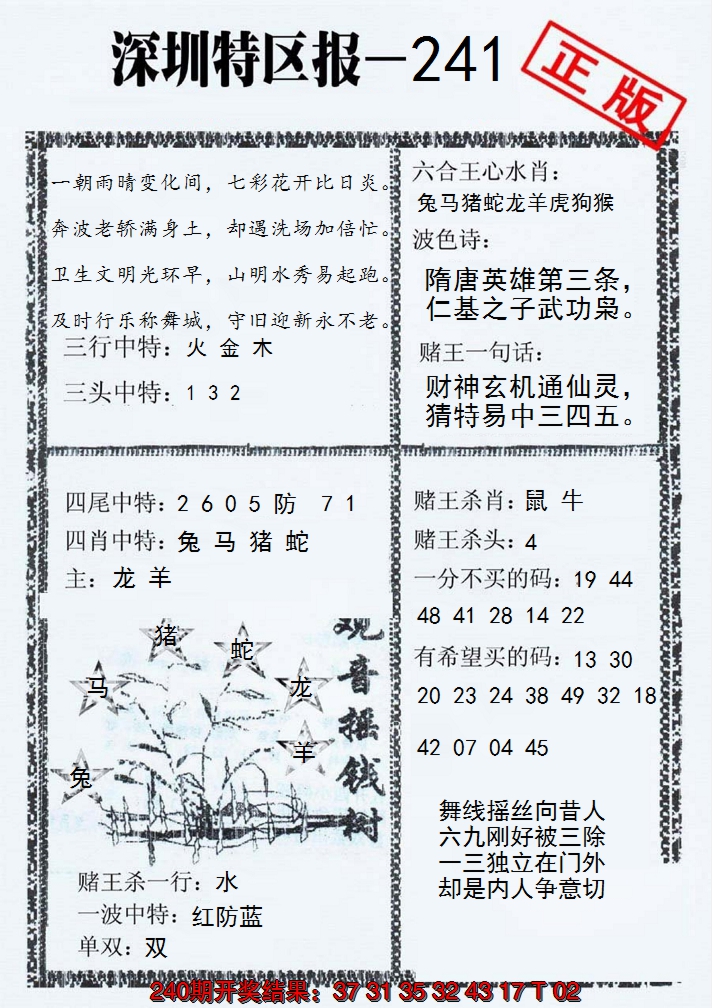 深圳特区报—241
正版
一朝雨晴变化间，七彩花开比日炎。
奔波老轿满身土，却遇洗场加倍忙。
卫生文明光环早，山明水秀易起跑。
及时行乐称舞城，守旧迎新永不老。
三行中特：火 金 木
三头中特：1 3 2
六合王心水肖：
兔马猪蛇龙羊虎狗猴
波色诗：
隋唐英雄第三条，
仁基之子武功枭。
赌王一句话：
财神玄机通仙灵，
猜特易中三四五。
四尾中特：2 6 0 5 防 7 1
四肖中特：兔 马 猪 蛇
主：龙 羊
猪
蛇
马
龙
羊
兔
观音摇钱树
赌王杀一行：水
一波中特：红防蓝
单双：双
赌王杀肖：鼠 牛
赌王杀头：4
一分不买的码：19 44
48 41 28 14 22
有希望买的码：13 30
20 23 24 38 49 32 18
42 07 04 45
舞线摇丝向昔人
六九刚好被三除
一三独立在门外
却是内人争意切
240期开奖结果：37 31 35 32 43 17 T 02